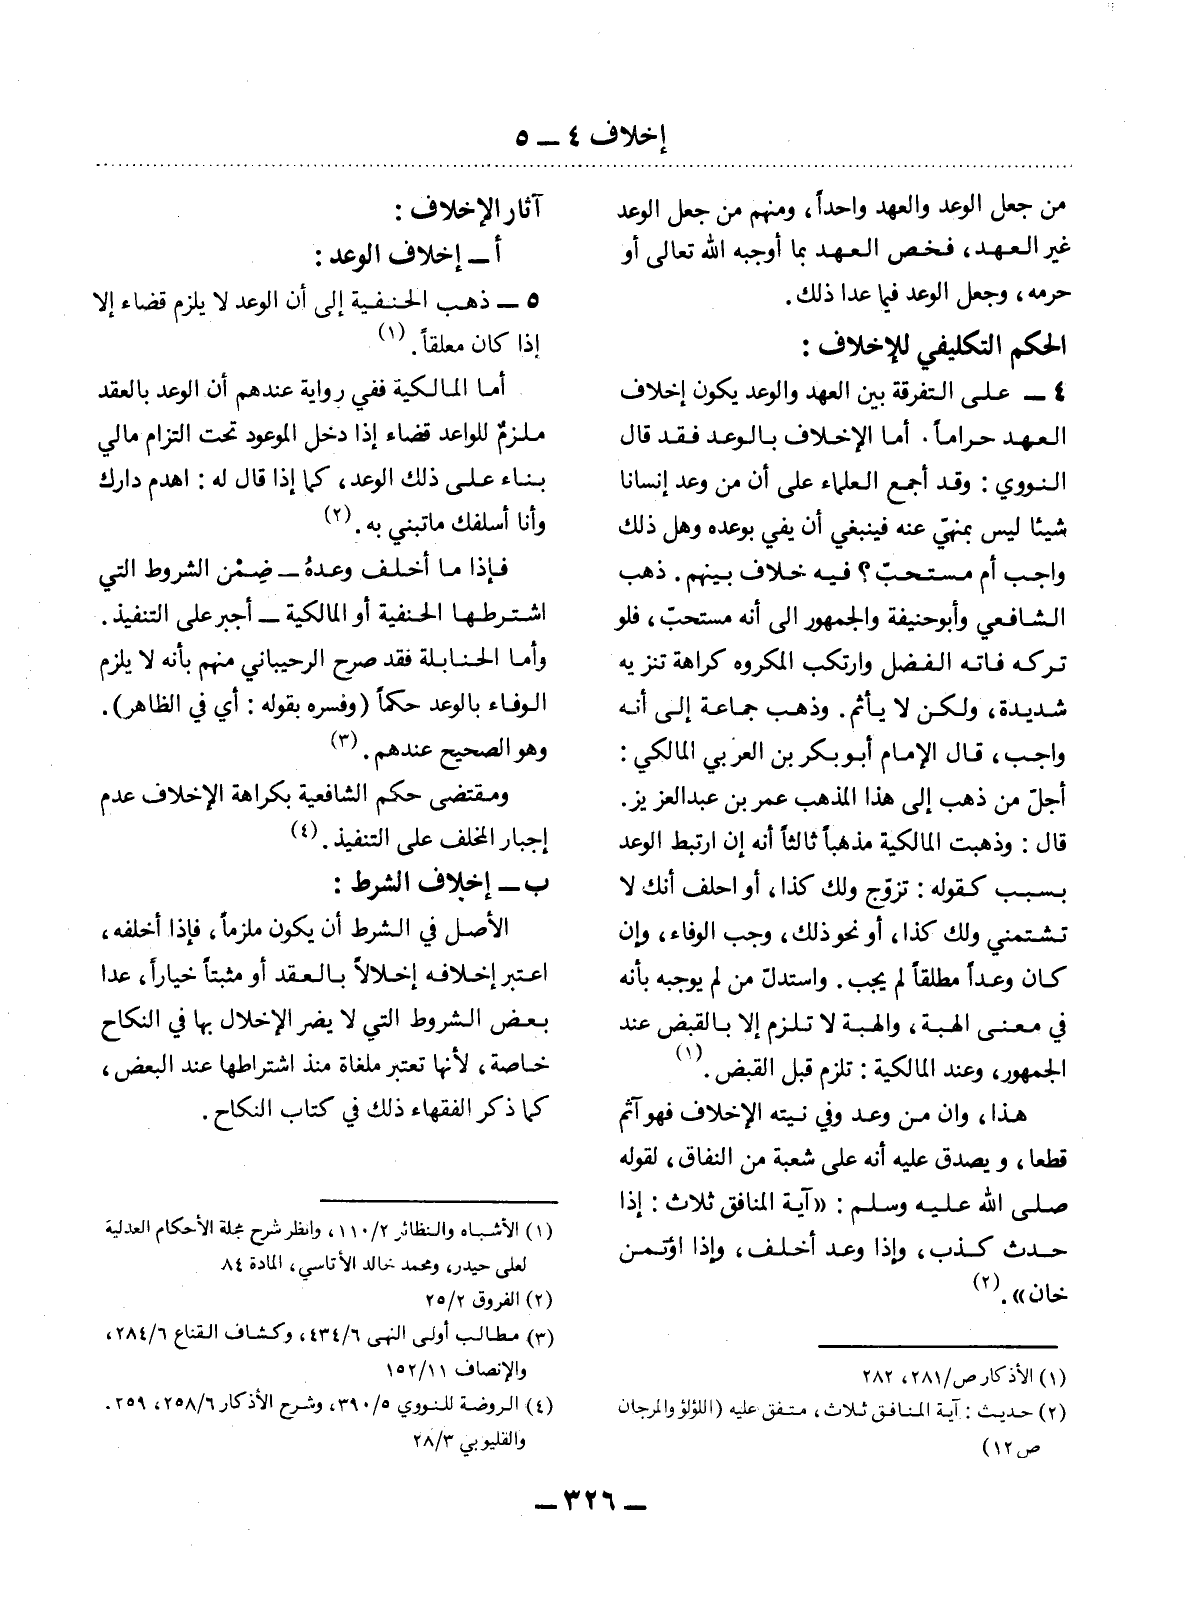 إخلاف ٤ ــ ٥
من جعل الوعد والعهد واحداً، ومنهم من جعل الوعد
غير العهد، فخص العهد بما أوجبه الله تعالى أو
حرمه، وجعل الوعد فيما عدا ذلك.
الحكم التكليفي للإخلاف :
٤ ــ على التفرقة بين العهد والوعد يكون إخلاف
العهد حراماً. أما الإخلاف بالوعد فقد قال
النووي : وقد أجمع العلماء على أن من وعد إنسانا
شيئا ليس بمنهيّ عنه فينبغي أن يفي بوعده وهل ذلك
واجب أم مستحبّ؟ فيه خلاف بينهم. ذهب
الشافعي وأبوحنيفة والجمهور الى أنه مستحبّ، فلو
تركه فاته الفضل وارتكب المكروه كراهة تنزيه
شديدة، ولكن لا يأثم. وذهب جماعة إلى أنه
واجب، قال الإمام أبوبكر بن العربي المالكي :
أجلّ من ذهب إلى هذا المذهب عمر بن عبدالعزيز.
قال : وذهبت المالكية مذهباً ثالثاً أنه إن ارتبط الوعد
بسبب كقوله : تزوّج ولك كذا، أو احلف أنك لا
تشتمني ولك كذا، أو نحو ذلك، وجب الوفاء، وإن
كان وعداً مطلقاً لم يجب. واستدلّ من لم يوجبه بأنه
في معنى الهبة، والهبة لا تلزم إلا بالقبض عند
الجمهور، وعند المالكية : تلزم قبل القبض. (١)
هذا، وان من وعد وفي نيته الإخلاف فهو آثم
قطعا، ويصدق عليه أنه على شعبة من النفاق، لقوله
صلى الله عليه وسلم : «آية المنافق ثلاث : إذا
حدث كذب، وإذا وعد أخلف، وإذا اؤتمن
خان». (٢)
(١) الأذكار ص/٢٨١، ٢٨٢
(٢) حديث : آية المنافق ثلاث، متفق عليه (اللؤلؤ والمرجان
ص١٢)
آثار الإخلاف :
أ ــ إخلاف الوعد :
٥ ــ ذهب الحنفية إلى أن الوعد لا يلزم قضاء إلا
إذا كان معلقاً. (١)
أما المالكية ففي رواية عندهم أن الوعد بالعقد
ملزمٌ للواعد قضاء إذا دخل الموعود تحت التزام مالي
بناء على ذلك الوعد، كما إذا قال له : اهدم دارك
وأنا أسلفك ماتبني به. (٢)
فإذا ما أخلف وعدهُ ــ ضِمْن الشروط التي
اشترطها الحنفية أو المالكية ــ أجبر على التنفيذ.
وأما الحنابلة فقد صرح الرحيباني منهم بأنه لا يلزم
الوفاء بالوعد حكماً (وفسره بقوله : أي في الظاهر).
وهو الصحيح عندهم. (٣)
ومقتضى حكم الشافعية بكراهة الإخلاف عدم
إجبار المخلف على التنفيذ. (٤)
ب ــ إخلاف الشرط :
الأصل في الشرط أن يكون ملزماً، فإذا أخلفه،
اعتبر إخلافه إخلالاً بالعقد أو مثبتاً خياراً، عدا
بعض الشروط التي لا يضر الإخلال بها في النكاح
خاصة، لأنها تعتبر ملغاة منذ اشتراطها عند البعض،
كما ذكر الفقهاء ذلك في كتاب النكاح.
(١) الأشباه والنظائر ١١٠/٢، وانظر شرح مجلة الأحكام العدلية
لعلى حيدر، ومحمد خالد الأتاسي، المادة ٨٤
(٢) الفروق ٢٥/٢
(٣) مطالب أولى النهى ٤٣٤/٦، وكشاف القناع ٢٨٤/٦،
والإنصاف ١٥٢/١١
(٤) الروضة للنووي ٣٩٠/٥، وشرح الأذكار ٢٥٨/٦، ٢٥٩.
والقليوبي ٢٨/٣
ــ ٣٢٦ ــ